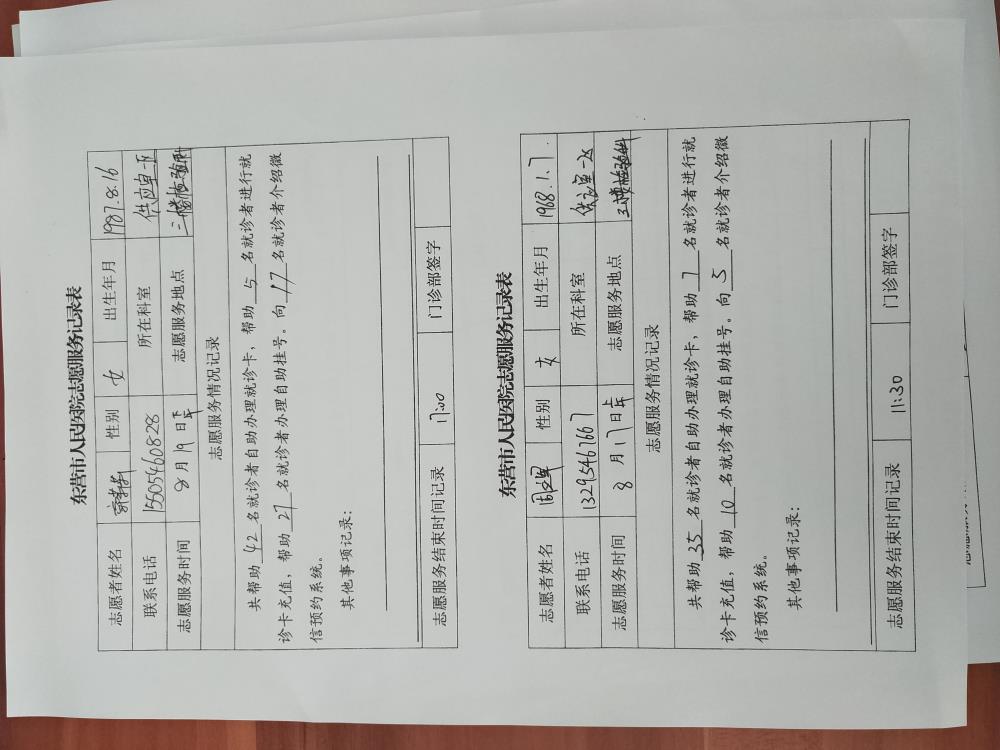 东营市人民医院志愿服务记录表
志愿者姓名 性别 女 出生年月 1987.8.16
联系电话 15505460828 所在科室 供应室一区
志愿服务时间 8月19日下午 志愿服务地点 三楼检验科
志愿服务情况记录
共帮助 42 名就诊者自助办理就诊卡，帮助 5 名就诊者进行就
诊卡充值，帮助 27 名就诊者办理自助挂号。向 17 名就诊者介绍微
信预约系统。
其他事项记录：
志愿服务结束时间记录 17:00 门诊部签字
东营市人民医院志愿服务记录表
志愿者姓名 性别 女 出生年月 1968.1.7.
联系电话 13295467667 所在科室 供应室一区
志愿服务时间 8月17日上午 志愿服务地点 三楼检验科
志愿服务情况记录
共帮助 35 名就诊者自助办理就诊卡，帮助 7 名就诊者进行就
诊卡充值，帮助 10 名就诊者办理自助挂号。向 5 名就诊者介绍微
信预约系统。
其他事项记录：
志愿服务结束时间记录 11:30 门诊部签字